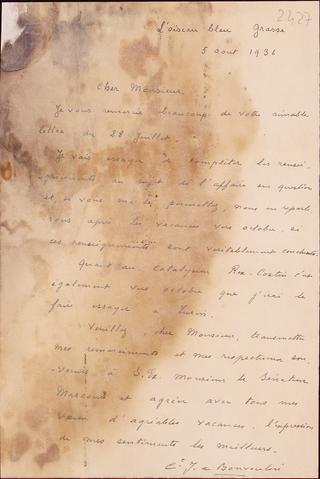 2427
L'oiseau bleu Grasse
5 août 1936
Cher Monsieur.
Je vous remercie beaucoup de votre aimable
lettre du 28 Juillet.
Je vais essayer de compléter les rensei-
gnements au sujet de l'affaire en question
et, si vous me le permettez, nous en reparle-
rons après les vacances vers octobre, si
ces renseignements sont véritablement concluants.
Quant au catalyseur c'est
également vers octobre que j'irai le
faire essayer à Turin.
Veuillez, cher Monsieur, transmettre
mes remerciements et mes respectueux sou-
venirs à S. Ex. Monsieur le Sénateur
Marconi et agréer avec tous mes
vœux d'agréables vacances, l'expression
de mes sentiments les meilleurs.
Cte J. de Bonvouloir